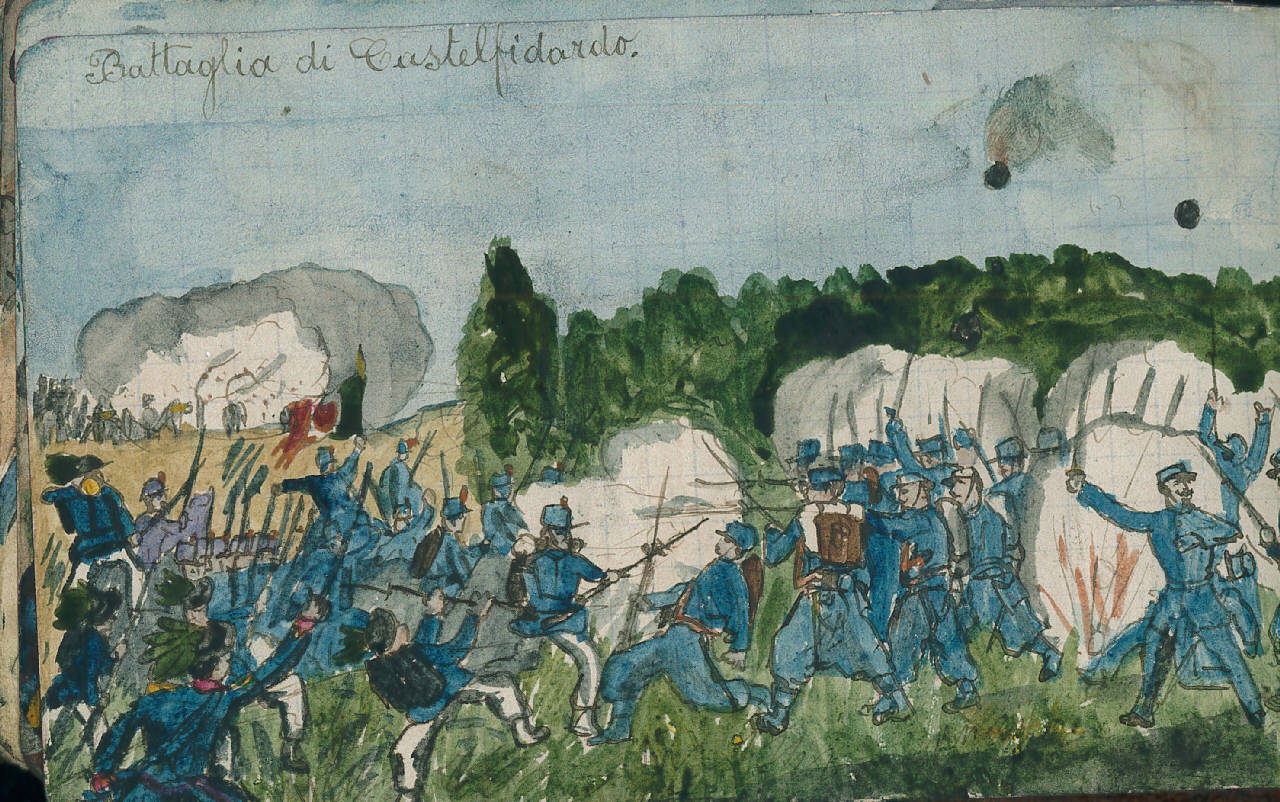 Battaglia di Castelfidardo.